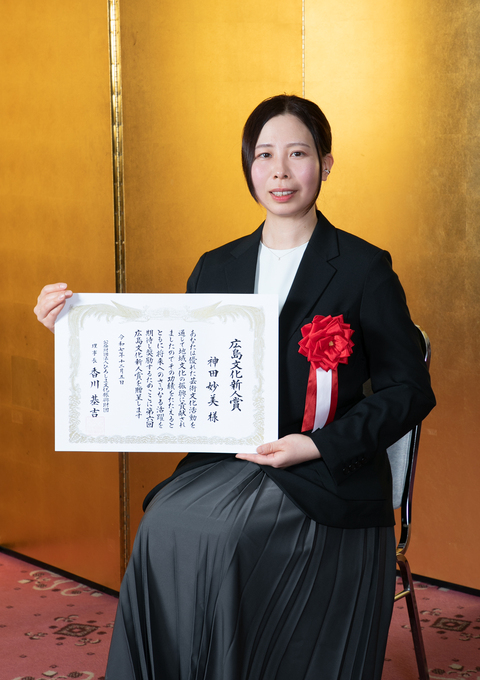 広島文化新人賞
神田妙美 様
あなたは優れた芸術文化活動を
通じて地域文化の振興に貢献され
ましたのでその功績をたたえると
ともに将来へのさらなる活躍を
期待し奨励するためここに第六回
広島文化新人賞を贈呈します
令和七年十二月五日
公益財団法人ひろしま文化振興財団
理事長 香川基吉